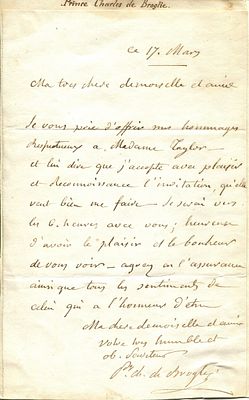 Prince Charles de Broglie.
ce 17. Mars
Ma tres chere demoiselle et amie
Je vous prie d'offrir mes hommages
respectueux a Madame Taylor
et lui dire que j'accepte avec plaisir
et Reconnoissance l'invitation qu'elle
veut bien me faire - Je serai vers
les 6. heures avec vous; heureux
d'avoir le plaisir et le bonheur
de vous voir - agreez en l'assurance
ainsi que tous les sentiments de
celui qui a l'honneur d'être
Ma chere demoiselle et amie
votre tres humble et
ob. Serviteur
Pce. Ch. de Broglie